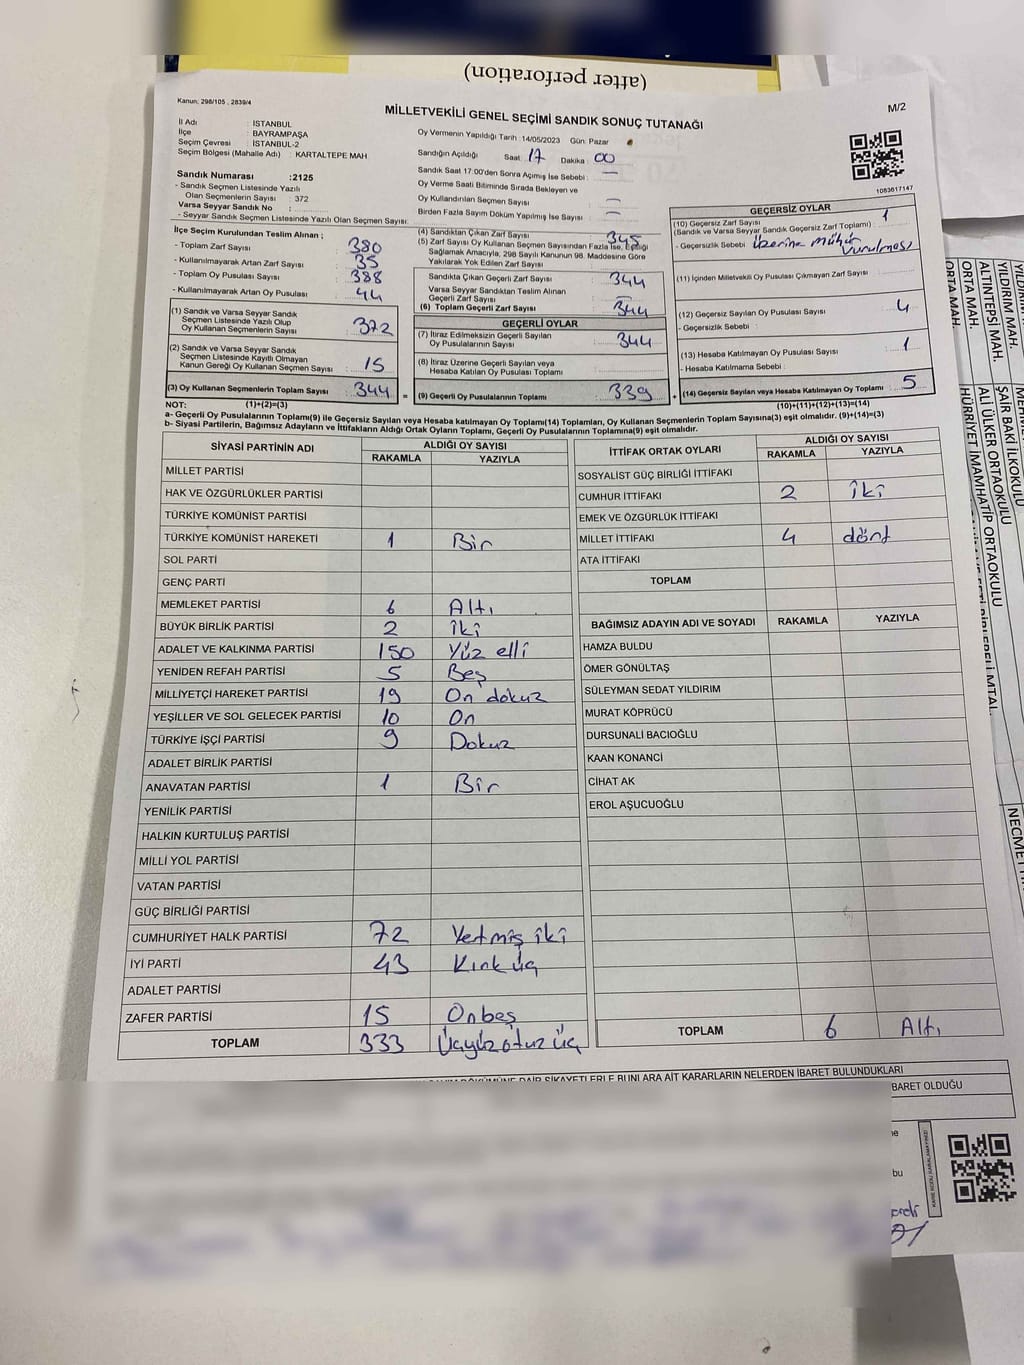 (after perforation)
Kanun: 298/105 , 2839/4
MİLLETVEKİLİ GENEL SEÇİMİ SANDIK SONUÇ TUTANAĞI
M/2
İl Adı : İSTANBUL
İlçe : BAYRAMPAŞA
Seçim Çevresi : İSTANBUL-2
Seçim Bölgesi (Mahalle Adı) : KARTALTEPE MAH
Oy Vermenin Yapıldığı Tarih :14/05/2023 Gün: Pazar
Sandığın Açıldığı Saat : 17 Dakika : 00
Sandık Saat 17:00'den Sonra Açımış İse Sebebi : —
Oy Verme Saati Bitiminde Sırada Bekleyen ve
Oy Kullandırılan Seçmen Sayısı : —
Birden Fazla Sayım Döküm Yapılmış İse Sayısı : —
1083617147
Sandık Numarası :2125
- Sandık Seçmen Listesinde Yazılı
Olan Seçmenlerin Sayısı 372
Varsa Seyyar Sandık No :
- Seyyar Sandık Seçmen Listesinde Yazılı Olan Seçmen Sayısı:
İlçe Seçim Kurulundan Teslim Alınan ;
- Toplam Zarf Sayısı : 380
- Kullanılmayarak Artan Zarf Sayısı : 35
- Toplam Oy Pusulası Sayısı : 388
- Kullanılmayarak Artan Oy Pusulası : 44
(1) Sandık ve Varsa Seyyar Sandık
Seçmen Listesinde Yazılı Olup
Oy Kullanan Seçmenlerin Sayısı : 372
(2) Sandık ve Varsa Seyyar Sandık
Seçmen Listesinde Kayıtlı Olmayan
Kanun Gereği Oy Kullanan Seçmen Sayısı : 15
(3) Oy Kullanan Seçmenlerin Toplam Sayısı : 344 =
(4) Sandıktan Çıkan Zarf Sayısı : 345
(5) Zarf Sayısı Oy Kullanan Seçmen Sayısından Fazla İse, Eşitliği
Sağlamak Amacıyla, 298 Sayılı Kanunun 98. Maddesine Göre
Yakılarak Yok Edilen Zarf Sayısı :
Sandıkta Çıkan Geçerli Zarf Sayısı : 344
Varsa Seyyar Sandıktan Teslim Alınan
Geçerli Zarf Sayısı : —
(6) Toplam Geçerli Zarf Sayısı : 344
GEÇERLİ OYLAR
(7) İtiraz Edilmeksizin Geçerli Sayılan
Oy Pusulalarının Sayısı : 344
(8) İtiraz Üzerine Geçerli Sayılan veya
Hesaba Katılan Oy Pusulası Toplamı :
(9) Geçerli Oy Pusulalarının Toplamı : 339 +
GEÇERSİZ OYLAR
(10) Geçersiz Zarf Sayısı : 1
(Sandık ve Varsa Seyyar Sandık Geçersiz Zarf Toplamı)
- Geçersizlik Sebebi : Üzerine mühür
vurulması
(11) İçinden Milletvekili Oy Pusulası Çıkmayan Zarf Sayısı :
(12) Geçersiz Sayılan Oy Pusulası Sayısı : 4
- Geçersizlik Sebebi :
(13) Hesaba Katılmayan Oy Pusulası Sayısı : 1
- Hesaba Katılmama Sebebi :
(14) Geçersiz Sayılan veya Hesaba Katılmayan Oy Toplamı : 5
NOT: (1)+(2)=(3) (10)+(11)+(12)+(13)=(14)
a- Geçerli Oy Pusulalarının Toplamı(9) ile Geçersiz Sayılan veya Hesaba katılmayan Oy Toplamı(14) Toplamları, Oy Kullanan Seçmenlerin Toplam Sayısına(3) eşit olmalıdır. (9)+(14)=(3)
b- Siyasi Partilerin, Bağımsız Adayların ve İttifakların Aldığı Ortak Oyların Toplamı, Geçerli Oy Pusulalarının Toplamına(9) eşit olmalıdır.
SİYASİ PARTİNİN ADI ALDIĞI OY SAYISI
RAKAMLA YAZIYLA
MİLLET PARTİSİ
HAK VE ÖZGÜRLÜKLER PARTİSİ
TÜRKİYE KOMÜNİST PARTİSİ
TÜRKİYE KOMÜNİST HAREKETİ 1 Bir
SOL PARTİ
GENÇ PARTİ
MEMLEKET PARTİSİ 6 Altı
BÜYÜK BİRLİK PARTİSİ 2 İki
ADALET VE KALKINMA PARTİSİ 150 Yüz elli
YENİDEN REFAH PARTİSİ 5 Beş
MİLLİYETÇİ HAREKET PARTİSİ 19 On dokuz
YEŞİLLER VE SOL GELECEK PARTİSİ 10 On
TÜRKİYE İŞÇİ PARTİSİ 9 Dokuz
ADALET BİRLİK PARTİSİ
ANAVATAN PARTİSİ 1 Bir
YENİLİK PARTİSİ
HALKIN KURTULUŞ PARTİSİ
MİLLİ YOL PARTİSİ
VATAN PARTİSİ
GÜÇ BİRLİĞİ PARTİSİ
CUMHURİYET HALK PARTİSİ 72 Yetmiş iki
İYİ PARTİ 43 Kırk üç
ADALET PARTİSİ
ZAFER PARTİSİ 15 Onbeş
TOPLAM 333 Üçyüzotuz üç
İTTİFAK ORTAK OYLARI ALDIĞI OY SAYISI
RAKAMLA YAZIYLA
SOSYALİST GÜÇ BİRLİĞİ İTTİFAKI
CUMHUR İTTİFAKI 2 İki
EMEK VE ÖZGÜRLÜK İTTİFAKI
MİLLET İTTİFAKI 4 dört
ATA İTTİFAKI
TOPLAM
BAĞIMSIZ ADAYIN ADI VE SOYADI RAKAMLA YAZIYLA
HAMZA BULDU
ÖMER GÖNÜLTAŞ
SÜLEYMAN SEDAT YILDIRIM
MURAT KÖPRÜCÜ
DURSUNALİ BACIOĞLU
KAAN KONANCİ
CİHAT AK
EROL AŞUCUOĞLU
TOPLAM 6 Altı
DÖKÜMÜNE DAİR ŞİKAYETLERLE BUNLARA AİT KARARLARIN NELERDEN İBARET BULUNDUKLARI
BARET OLDUĞU
bu
YILDIRIM MAH.
ALTINTEPSİ MAH.
ORTA MAH.
ORTA MAH.
ŞAİR BAKİ İLKOKULU
ALİ ÜLKER ORTAOKULU
HÜRRİYET İMAMHATİP ORTAOKULU